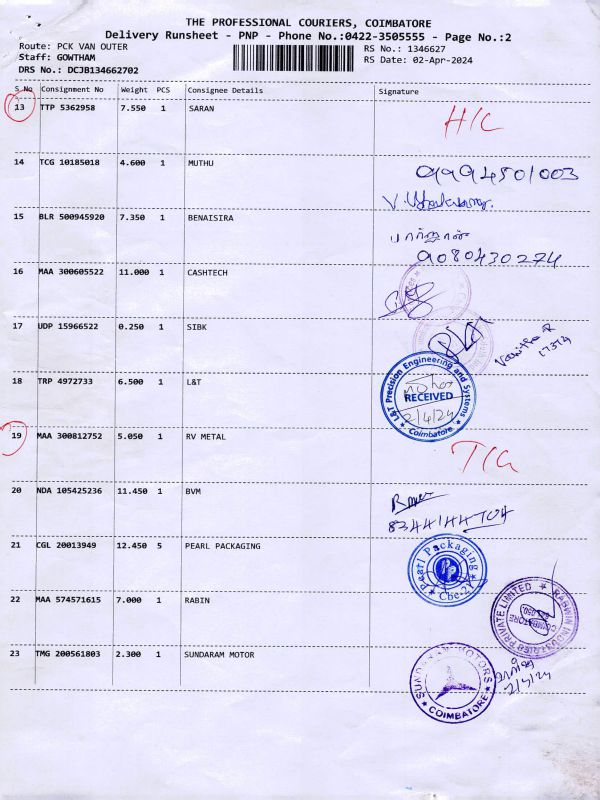 THE PROFESSIONAL COURIERS, COIMBATORE
Delivery Runsheet - PNP - Phone No.:0422-3505555 - Page No.:2
Route: PCK VAN OUTER
RS No.: 1346627
Staff: GOWTHAM
RS Date: 02-Apr-2024
DRS No.: DCJB134662702
S No Consignment No Weight PCS Consignee Details Signature
13 TTP 5362958 7.550 1 SARAN
H/C
14 TCG 10185018 4.600 1 MUTHU
9994501003
15 BLR 500945920 7.350 1 BENAISIRA
9080430274
16 MAA 300605522 11.000 1 CASHTECH
17 UDP 15966522 0.250 1 SIBK
Vanitha R
17374
18 TRP 4972733 6.500 1 L&T
L&T Precision Engineering and Systems
RECEIVED
2/4/24
Coimbatore
19 MAA 300812752 5.050 1 RV METAL
20 NDA 105425236 11.450 1 BVM
8344144704
21 CGL 20013949 12.450 5 PEARL PACKAGING
Pearl Packaging
PP
Cbe-21
22 MAA 574571615 7.000 1 RABIN
RABWIN INDUSTRIES PRIVATE LIMITED
COIMBATORE
23 TMG 200561803 2.300 1 SUNDARAM MOTOR
SUNDARAM MOTORS
COIMBATORE
2/4/24